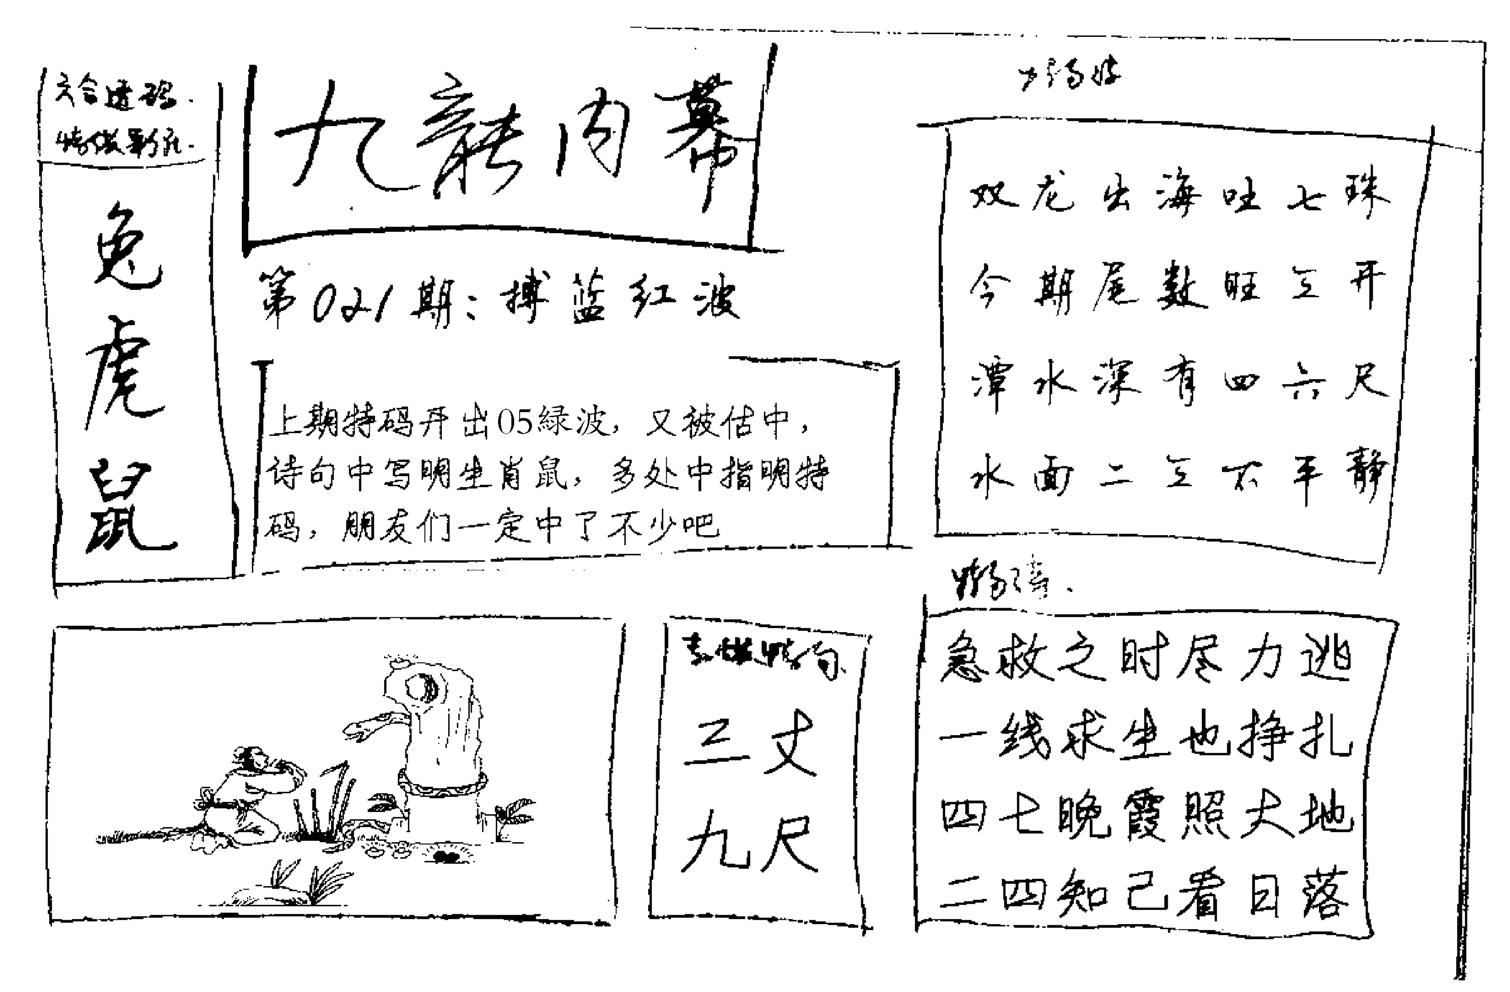 六合透码.
九龍内幕
第021期：搏蓝红波
兔
虎
鼠
上期特码开出05緑波，又被估中，
诗句中写明生肖鼠，多处中指明特
码，朋友们一定中了不少吧
双龙出海吐七珠
今期尾数旺三开
潭水深有四六尺
水面二三不平静
三丈
九尺
急救之时尽力逃
一线求生也挣扎
四七晚霞照大地
二四知己看日落